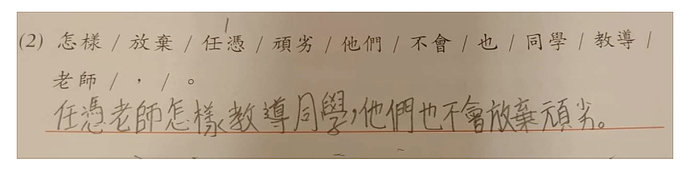 (2) 怎樣 / 放棄 / 任憑 / 頑劣 / 他們 / 不會 / 也 / 同學 / 教導 /
老師 / , / 。
任憑老師怎樣教導同學,他們也不會放棄頑劣。